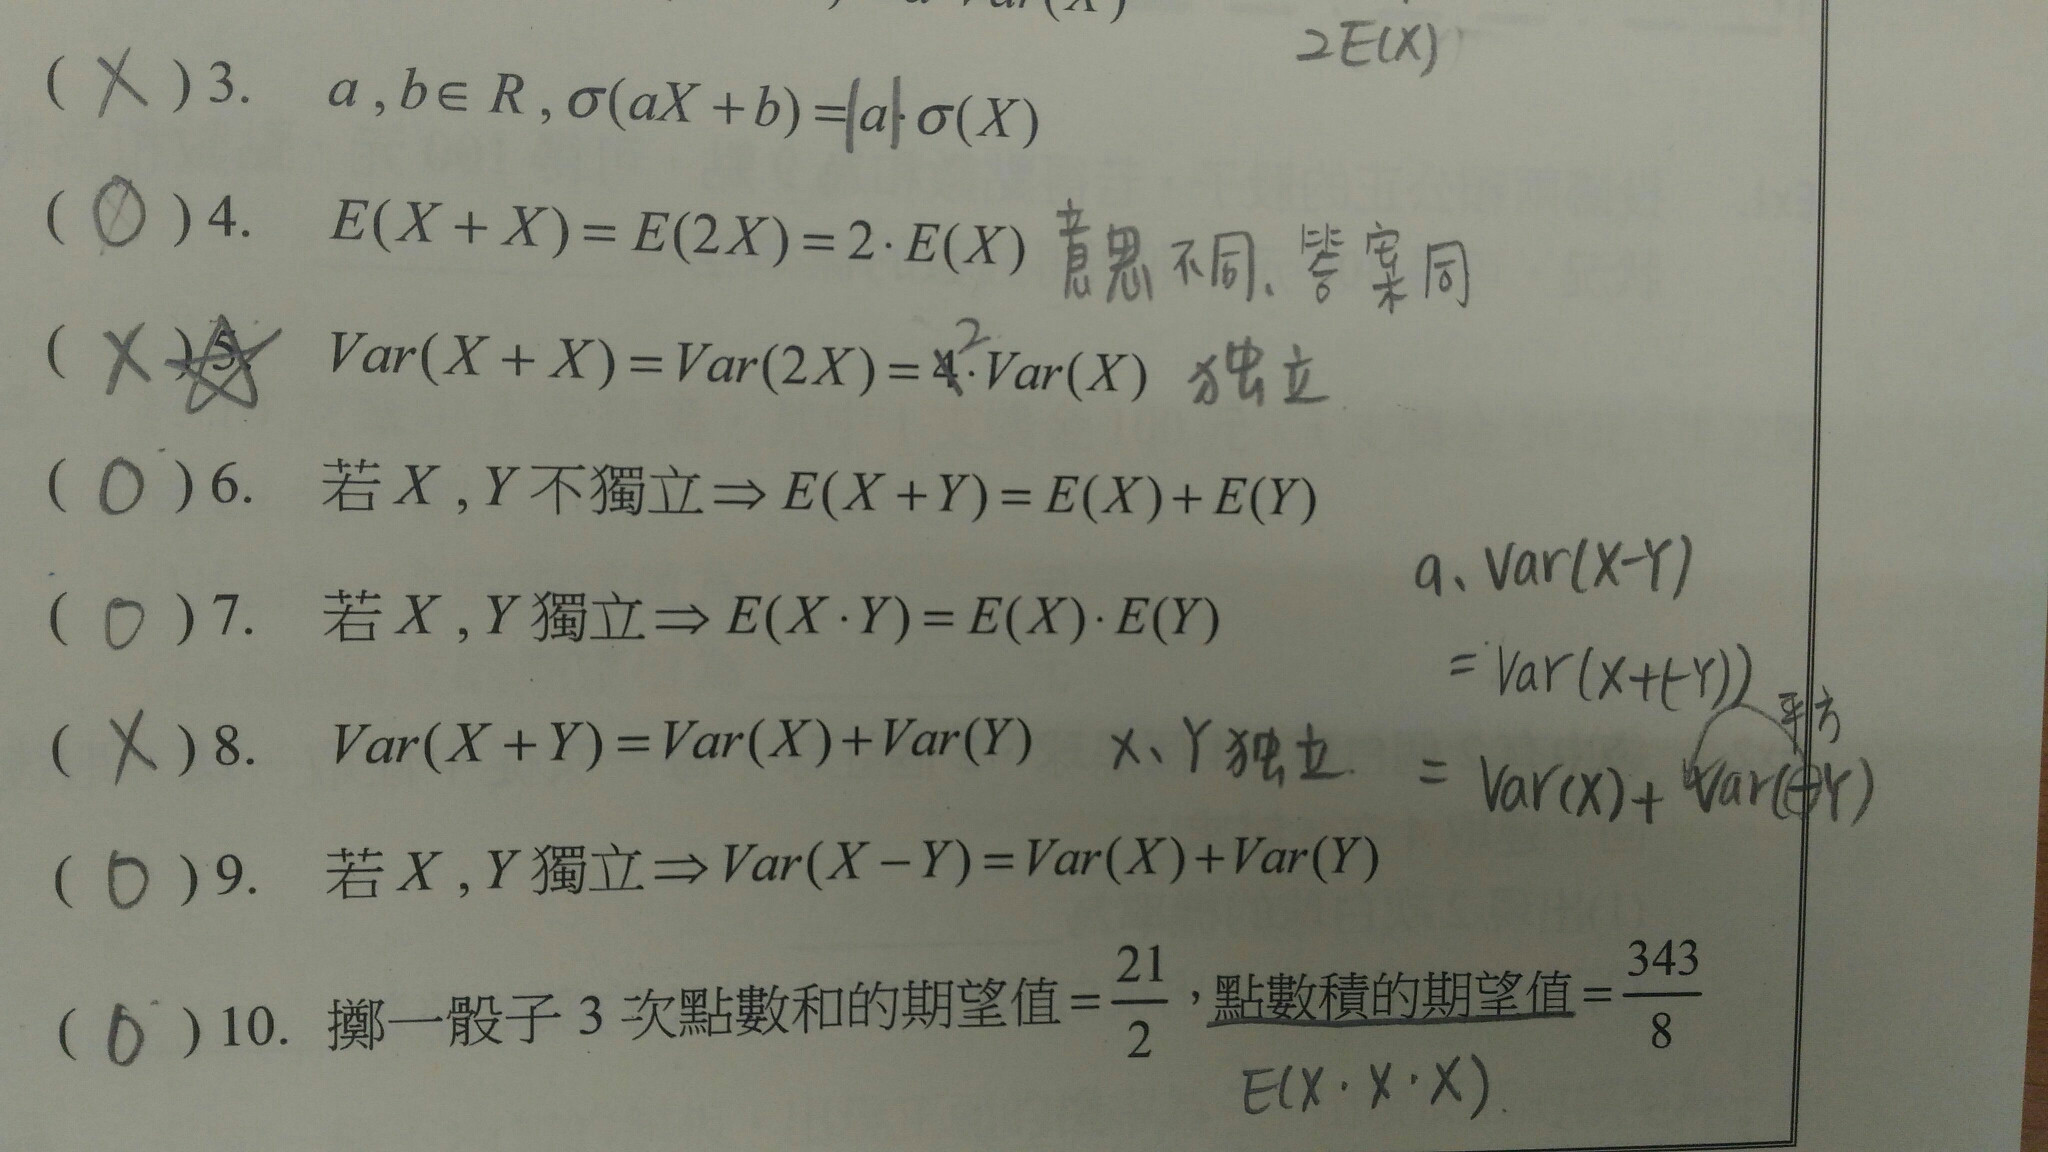 2E(X)
( X ) 3. a , b ∈ R , σ(aX + b) = |a| · σ(X)
( O ) 4. E(X + X) = E(2X) = 2 · E(X) 意思不同、答案同
( X ) ☆5. Var(X + X) = Var(2X) = 4 2 · Var(X) 独立
( O ) 6. 若 X , Y 不獨立 ⇒ E(X + Y) = E(X) + E(Y)
( O ) 7. 若 X , Y 獨立 ⇒ E(X · Y) = E(X) · E(Y)
9、Var(X-Y)
= Var(X+(-Y))
平方
( X ) 8. Var(X + Y) = Var(X) + Var(Y) X、Y 独立
= Var(X) + Var(-Y)
( O ) 9. 若 X , Y 獨立 ⇒ Var(X − Y) = Var(X) + Var(Y)
( O ) 10. 擲一骰子 3 次點數和的期望值 = 21/2 , 點數積的期望值 = 343/8
E(X · X · X)